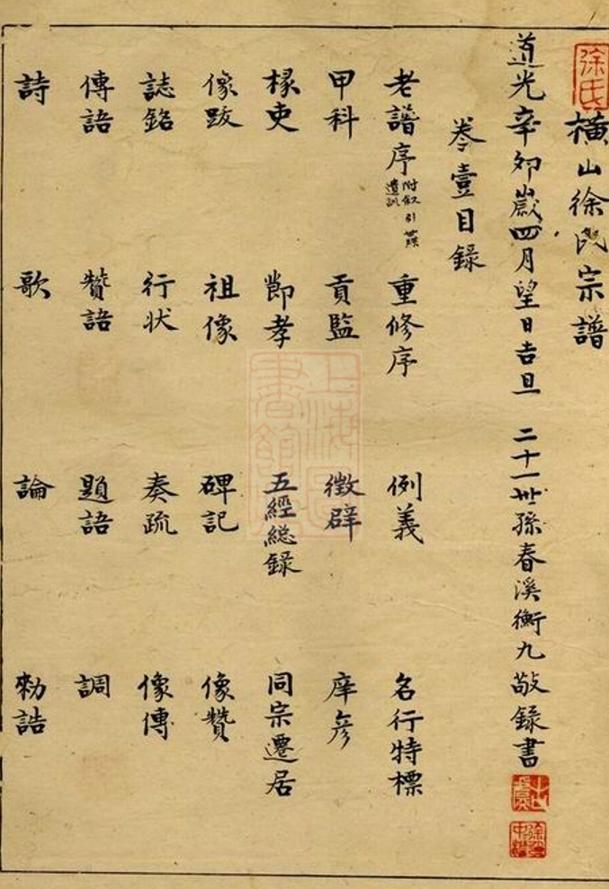 徐氏
橫山徐氏宗譜
道光辛卯歲四月望日吉旦 二十一世孫春溪衡九敬錄書
卷壹目錄
老譜序 附叙引 遺訓 重修序 例義 名行特標
甲科 貢監 徵辟 庠彥
椽吏 節孝 五經総录 同宗遷居
像跋 祖像 碑記 像贊
誌銘 行状 奏疏 像傳
傳語 贊語 題語 調
詩 歌 論 勅誥